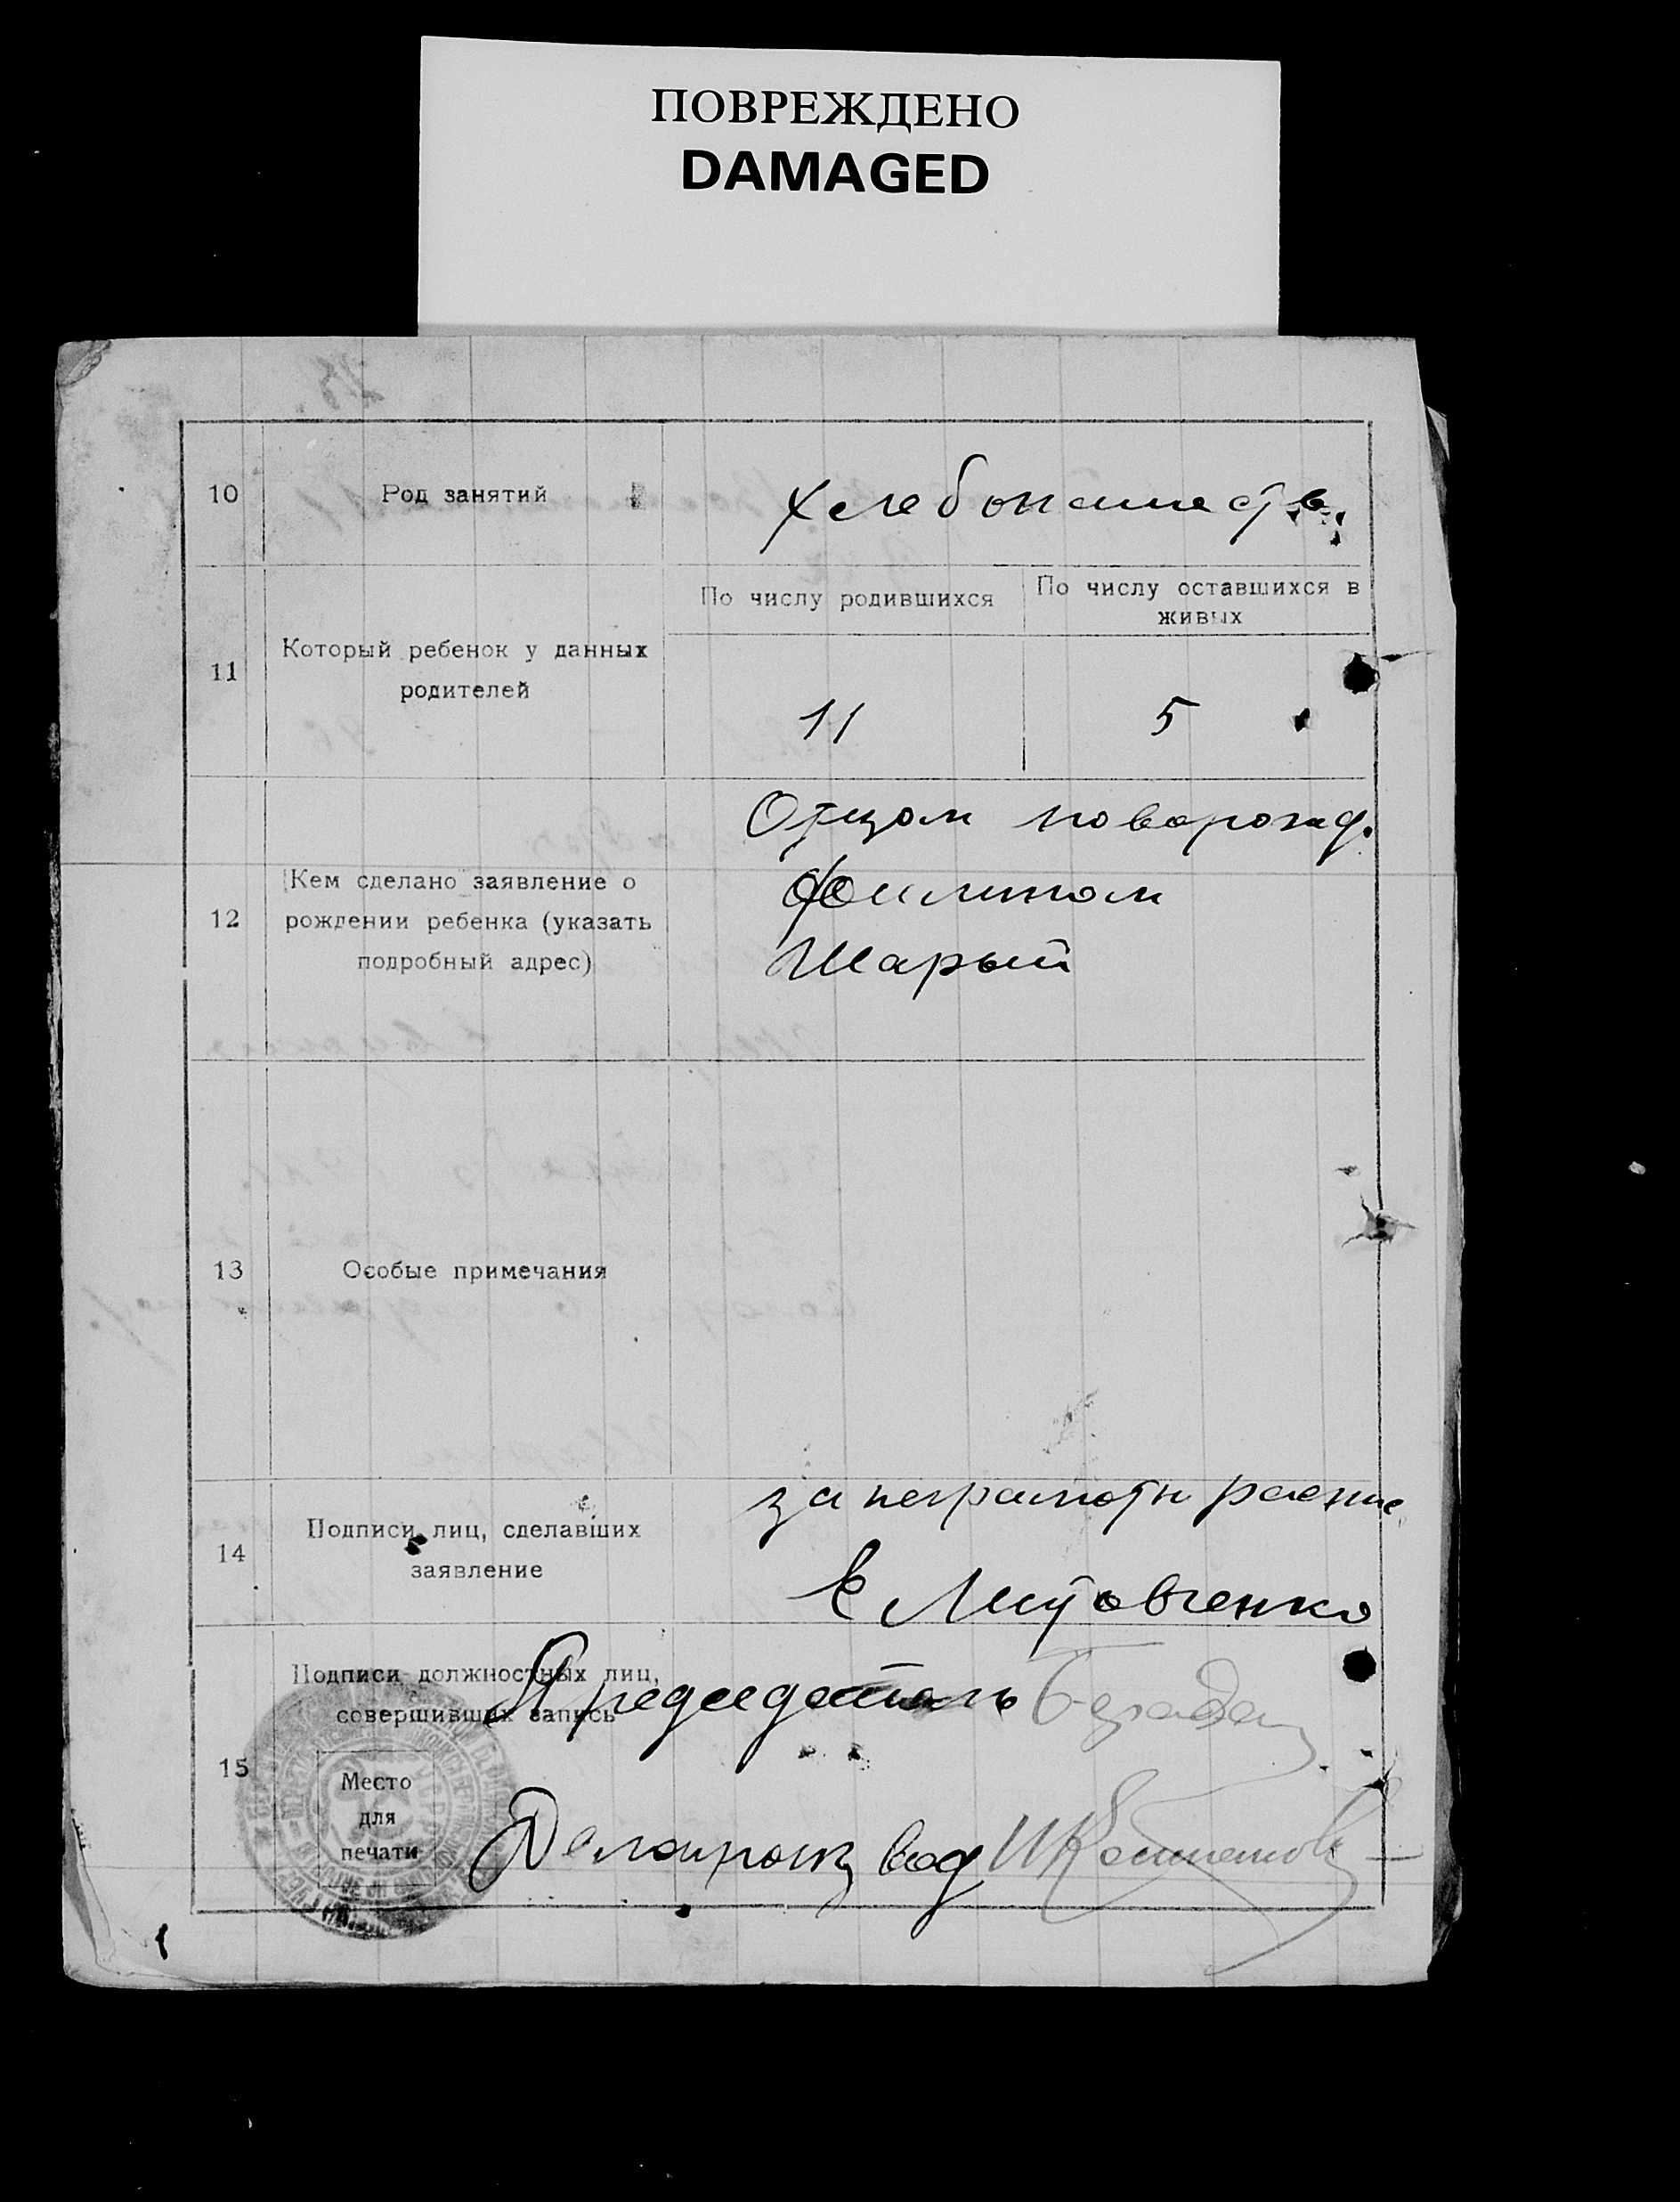 ПОВРЕЖДЕНО
DAMAGED
10
Род занятий
Хлебопашеств.
11
Который ребенок у данных
родителей
По числу родившихся
По числу оставшихся в
живых
11
5
12
Кем сделано заявление о
рождении ребенка (указать
подробный адрес)
Отцом новорожд.
Филипом
Шарый
13
Особые примечания
14
Подписи лиц, сделавших
заявление
за неграмотн
15
Подписи должностных лиц,
совершивших запись
Место
для
печати
Председатель
Делопроизвод